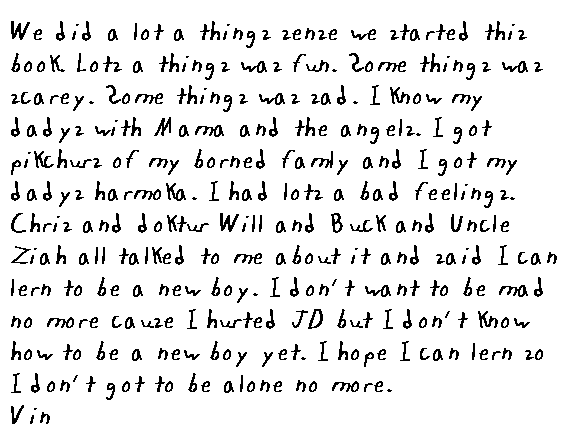 We did a lot a things sense we started this
book. Lots a things was fun. Some things was
scarey. Some things was sad. I know my
dadys with Mama and the angels. I got
pikchurs of my borned famly and I got my
dadys harmoka. I had lots a bad feelings.
Chris and doktur Will and Buck and Uncle
Ziah all talked to me about it and said I can
lern to be a new boy. I don't want to be mad
no more cause I hurted JD but I don't know
how to be a new boy yet. I hope I can lern so
I don't got to be alone no more.
Vin